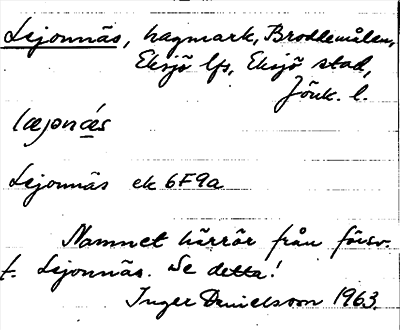 Lejonnäs, hagmark, Broddemålen,
Eksjö lfs, Eksjö stad,
Jönk. l.
læjonä́s
Lejonnäs ek 6F9a
Namnet härrör från försv.
t. Lejonnäs. Se detta!
Inger Danielsson 1963.